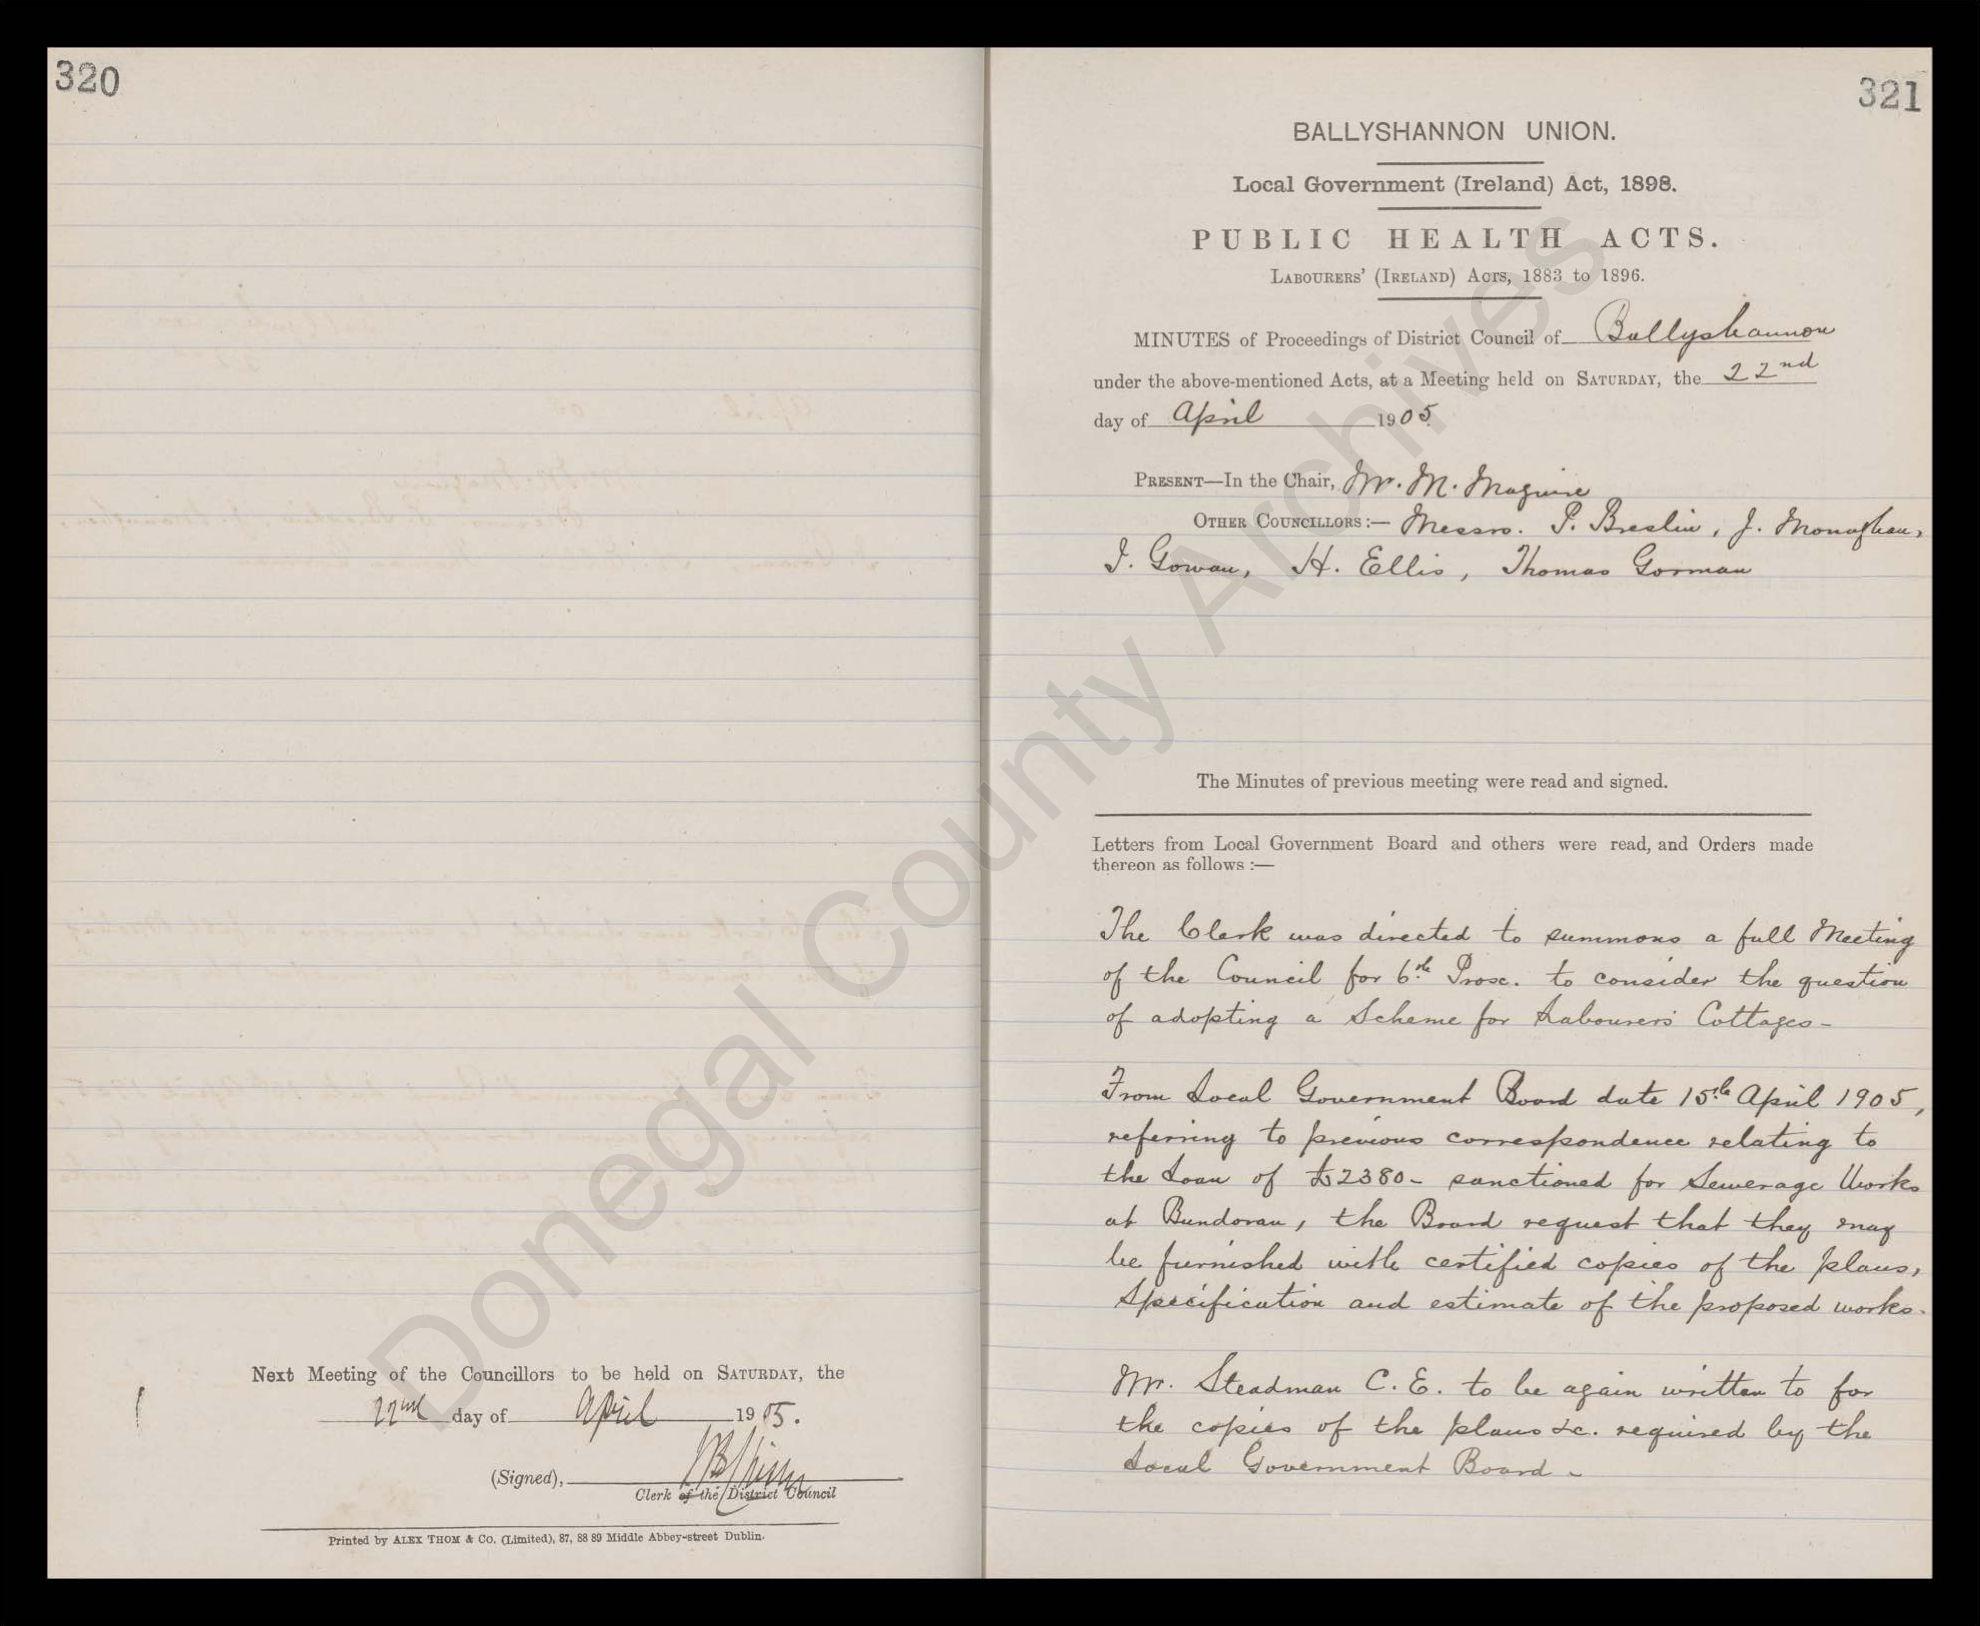 320
Next Meeting of the Councillors to be held on SATURDAY, the
22nd day of April 1905.
(Signed),
Clerk of the District Council
Printed by ALEX THOM & CO. (Limited), 87, 88 89 Middle Abbey-street Dublin.
321
BALLYSHANNON UNION.
Local Government (Ireland) Act, 1898.
PUBLIC HEALTH ACTS.
LABOURERS' (IRELAND) ACTS, 1883 to 1896.
MINUTES of Proceedings of District Council of Ballyshannon
under the above-mentioned Acts, at a Meeting held on SATURDAY, the 22nd
day of April 1905.
PRESENT—In the Chair, Mr. M. Maguire
OTHER COUNCILLORS:— Messrs. P. Breslin, J. Monaghan,
I. Gowan, H. Ellis, Thomas Gorman
The Minutes of previous meeting were read and signed.
Letters from Local Government Board and others were read, and Orders made
thereon as follows:—
The Clerk was directed to summons a full Meeting
of the Council for 6th Prox. to consider the question
of adopting a Scheme for Labourers' Cottages—
From Local Government Board date 15th April 1905,
referring to previous correspondence relating to
the Loan of £2380- sanctioned for Sewerage Works
at Bundoran, the Board request that they may
be furnished with certified copies of the plans,
Specification and estimate of the proposed works.
Mr. Steadman C.E. to be again written to for
the copies of the plans &c. required by the
Local Government Board—
Donegal County Archives